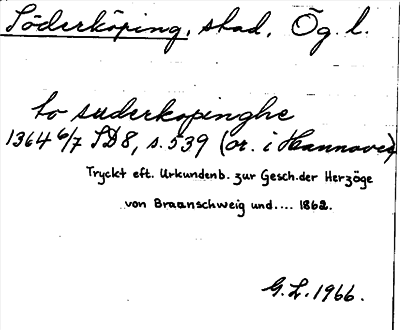 Söderköping, stad, Ög. l.
to suderkopinghe
1364 6/7 SD8, s. 539 (or. i Hannover)
Tryckt eft. Urkundenb. zur Gesch. der Herzöge
von Braunschweig und.... 1862.
G.L. 1966.